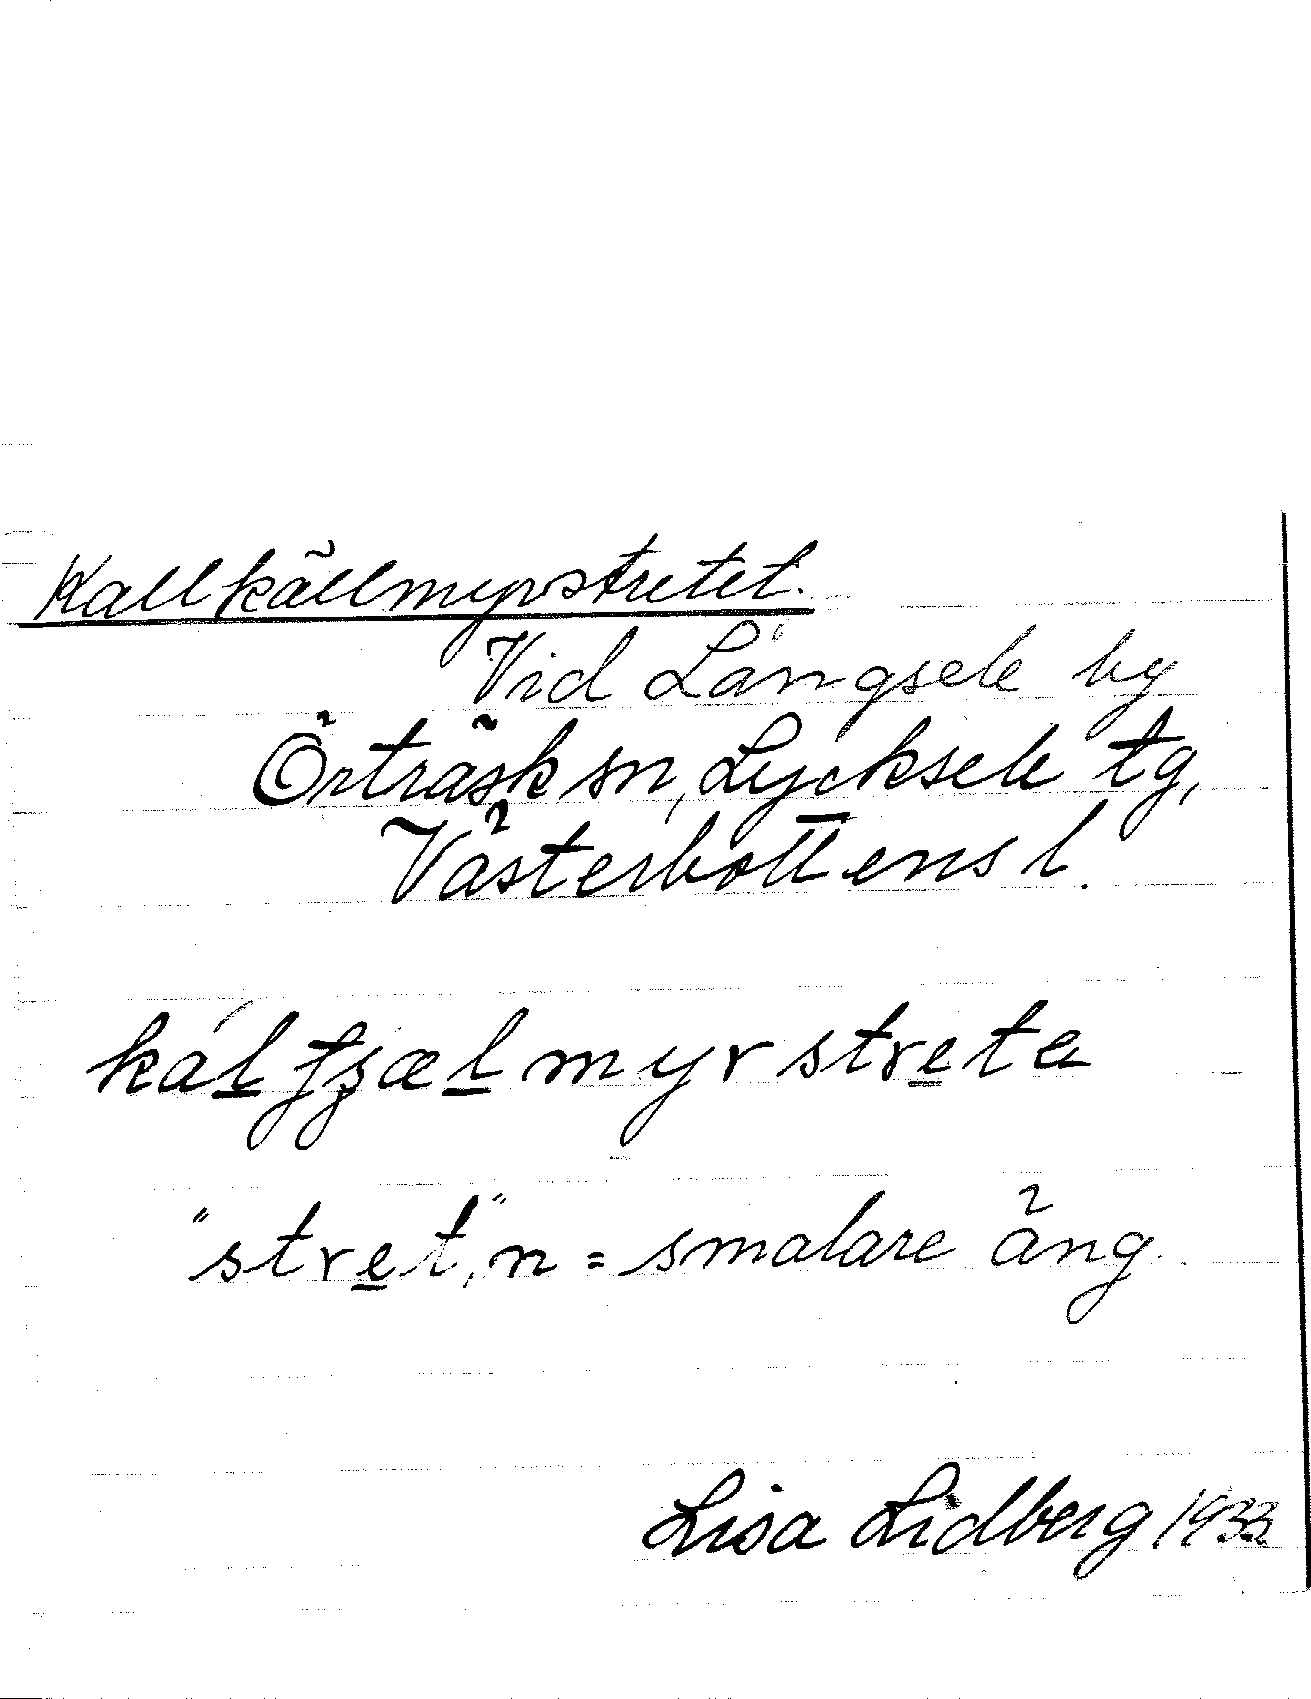 Kallkällmyrstretet.
Vid Långsele by
Örträsk sn, Lycksele tg,
Västerbottens l.
kál̲ tʂæl̲ myrstre̲ta
"stre̲t", n = smalare äng
Lisa Lidberg 1933